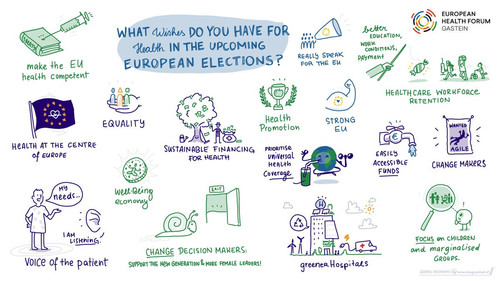 WHAT Wishes DO YOU HAVE FOR
Health IN THE UPCOMING
EUROPEAN ELECTIONS?
EUROPEAN
HEALTH FORUM
GASTEIN
make the EU
health competent
REALLY SPEAK
FOR THE EU
better
EDUCATION,
WORK CONDITIONS,
PAYMENT
HEALTHCARE WORKFORCE
RETENTION
HEALTH AT THE CENTRE
of EUROPE
EQUALITY
SUSTAINABLE FINANCING
FOR HEALTH
Health
Promotion
STRONG
EU
PRIORITISE
Universal
Health
Coverage
EASILY
ACCESSIBLE
FUNDS
WANTED
AGILE
CHANGE MAKERS
MY
needs...
I AM
LISTENING.
VOICE OF the patient
Well-Being
economy
EXIT
CHANGE DECISION MAKERS.
SUPPORT THE NEW GENERATION & MORE FEMALE LEADERS!
H
greener Hospitals
FOCUS on CHILDREN
and marginalised
GROUPS.